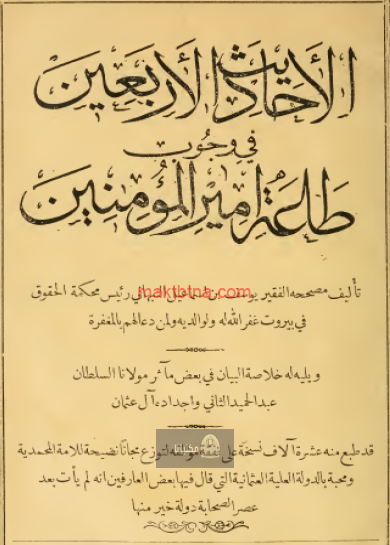 الأحاديث الأربعين
في وجوب
طاعة أمير المؤمنين
تأليف مصححه الفقير يوسف بن اسماعيل النبهاني رئيس محكمة الحقوق
في بيروت غفر الله له ولوالديه ولمن دعا لهم بالمغفرة
maktbtna.com
ويليه له خلاصة البيان في بعض مآثر مولانا السلطان
عبد الحميد الثاني واجداده آل عثمان
قد طبع منه عشرة آلاف نسخة على نفقة مؤلفه لتوزع مجانا نصيحة للامة المحمدية
مكتبتنا
ومحبة بالدولة العلية العثمانية التي قال فيها بعض العارفين انه لم يأت بعد
عصر الصحابة دولة خير منها